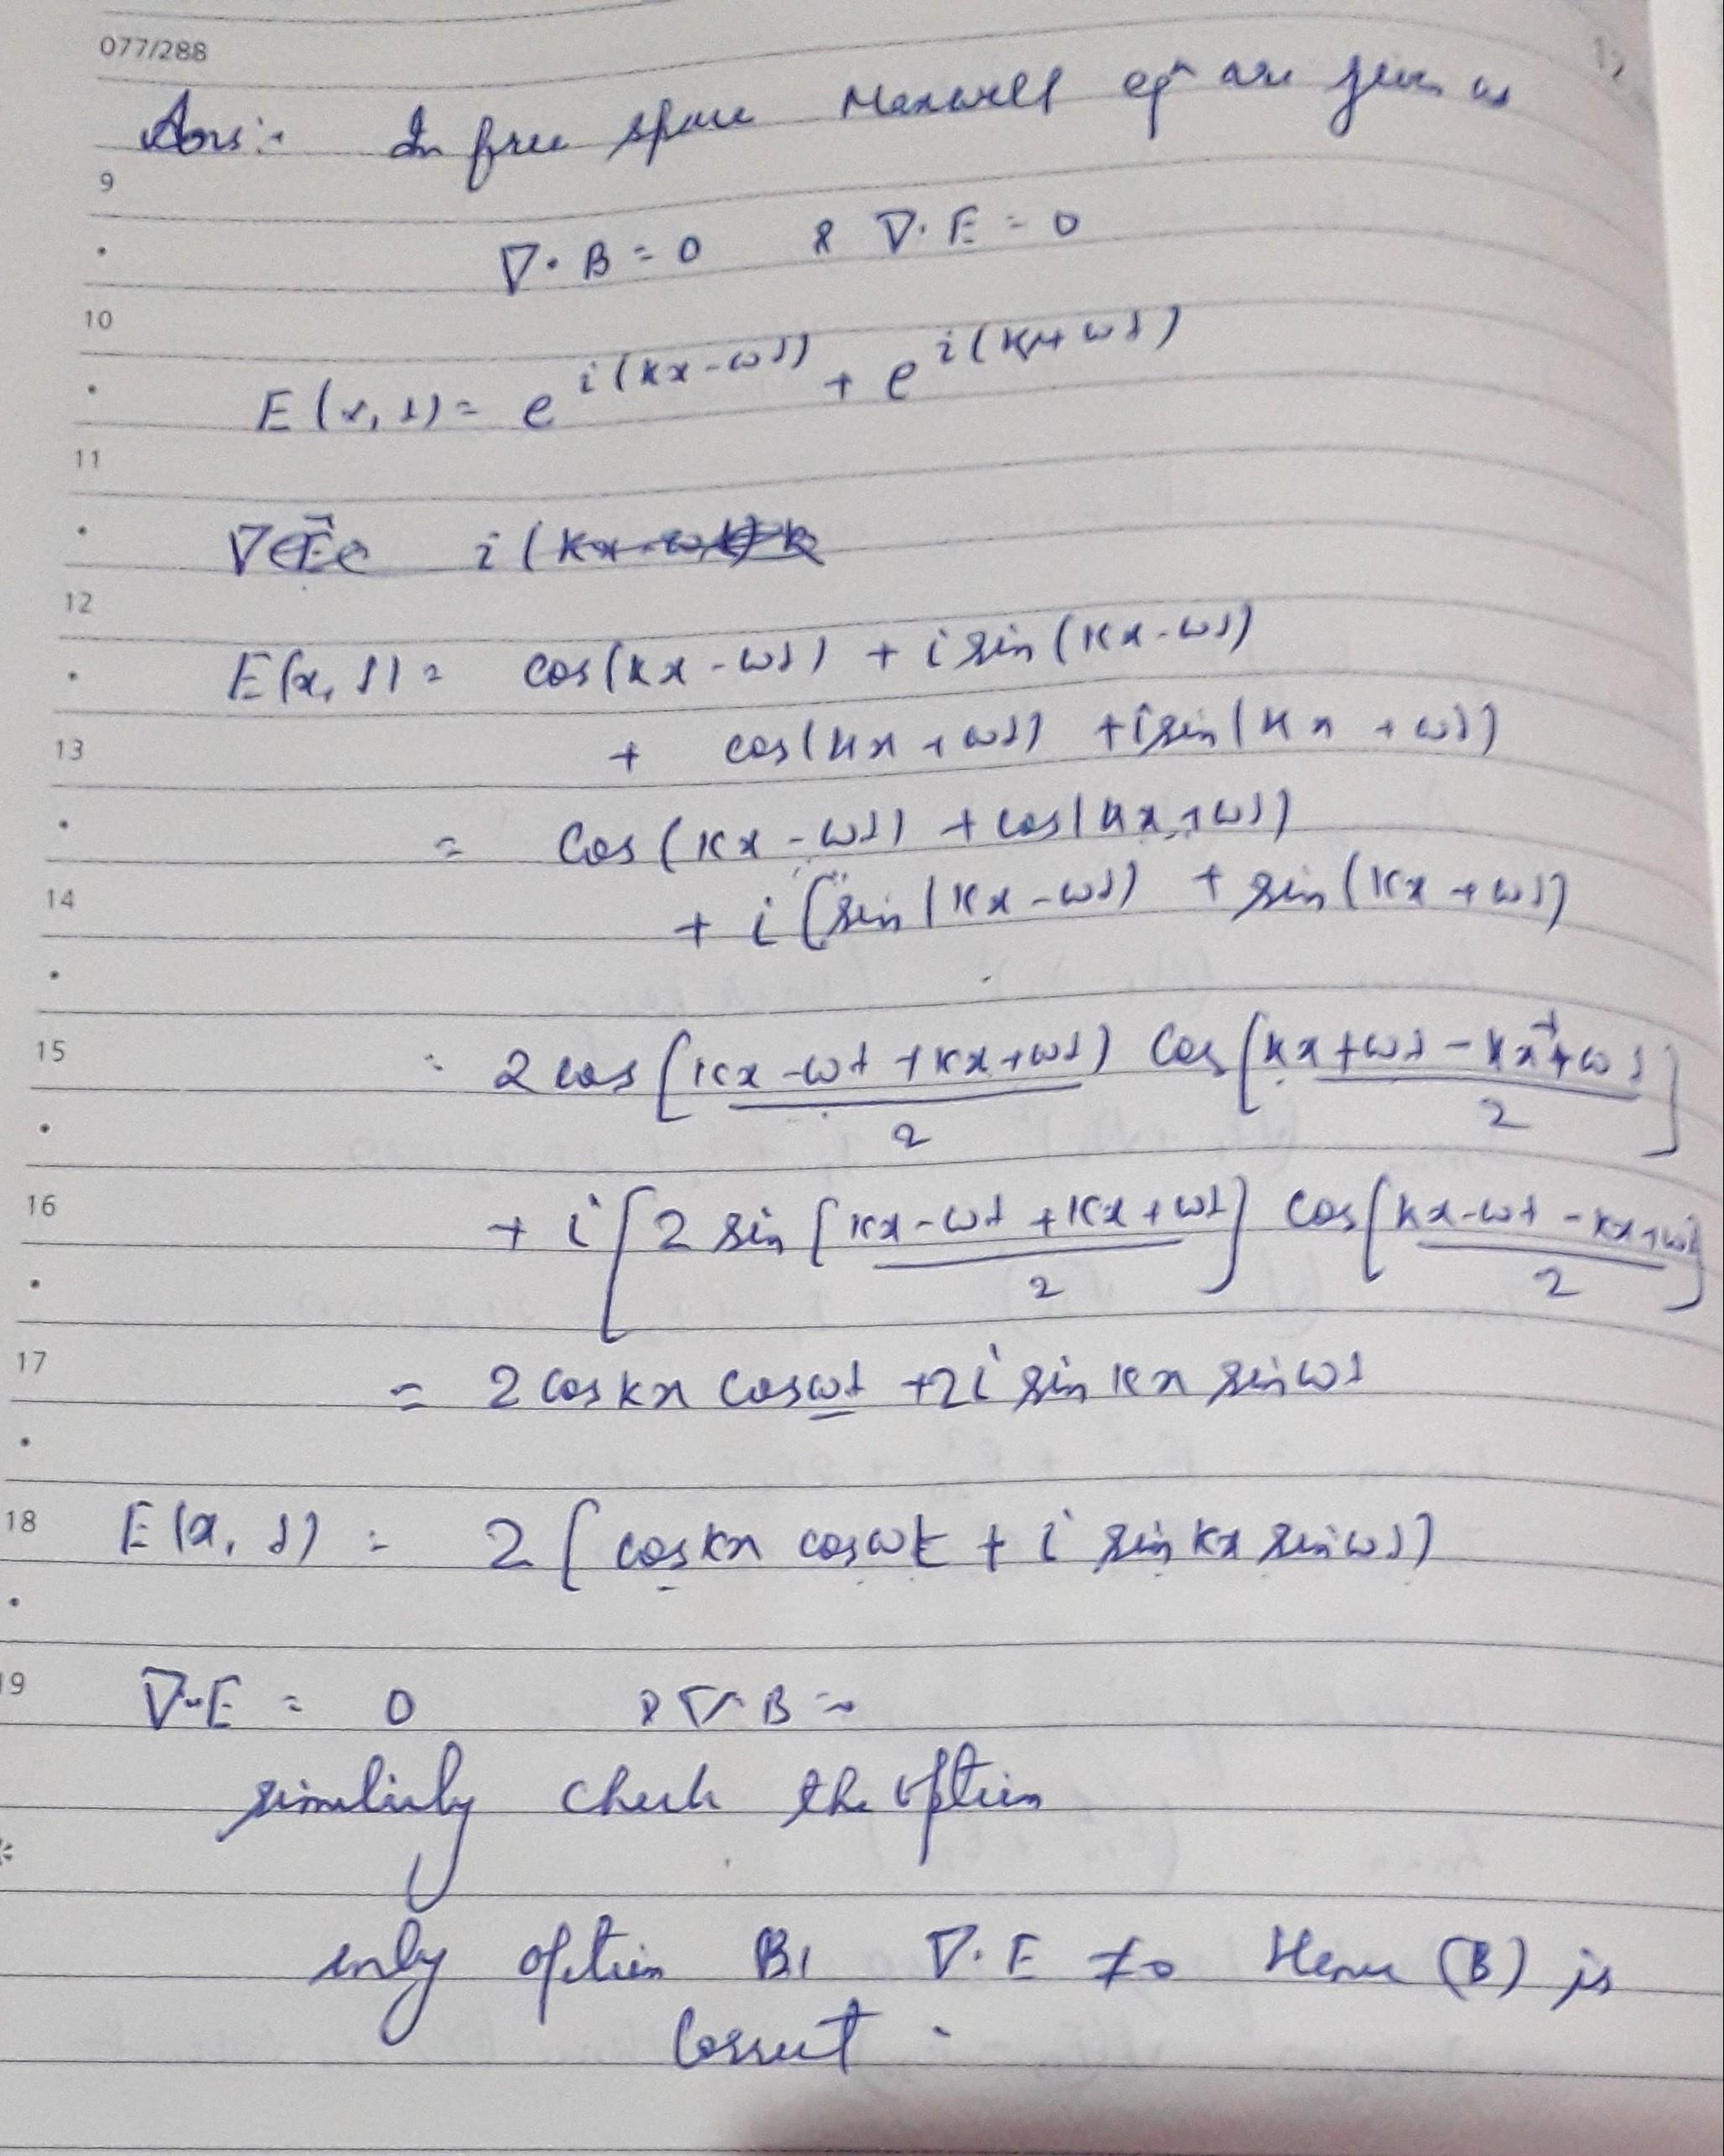 077/288
Ans:- In free space Maxwell eqn are given as
9
∇·B = 0 & ∇·E = 0
10
E(x,t) = e^{i(kx-ωt)} + e^{i(kx+ωt)}
11
i(kx-ωt)
12
E(x,t) = cos(kx-ωt) + i sin(kx-ωt)
13
+ cos(kx+ωt) + i sin(kx+ωt)
= cos(kx-ωt) + cos(kx+ωt)
14
+ i(sin(kx-ωt) + sin(kx+ωt)
15
= 2 cos[(kx-ωt+kx+ωt)/2) cos[(kx+ωt-kx+ωt)/2]
16
+ i[2 sin[(kx-ωt+kx+ωt)/2] cos[(kx-ωt-kx+ωt)/2]
17
= 2 cos kx cos ωt + 2i sin kx sin ωt
18
E(x,t) = 2[cos kx cos ωt + i sin kx sin ωt)
19
∇·E = 0 & ∇·B =
similarly check the option
only option B, ∇·E ≠ 0 Hence (B) is
correct.